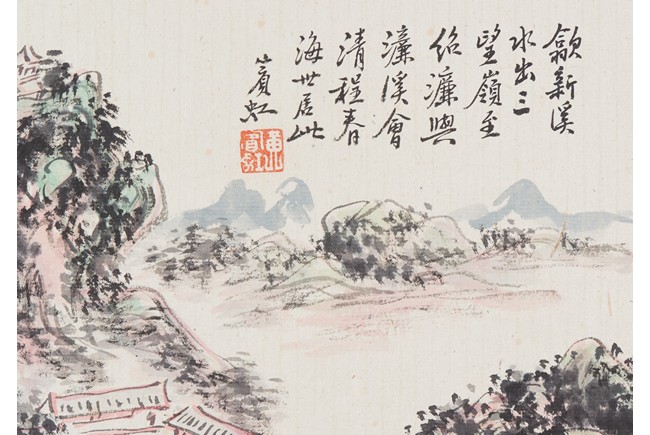 歙新溪
水出三
望嶺至
紹濂與
濂溪會
清程春
海世居此
賓虹
黃賓虹